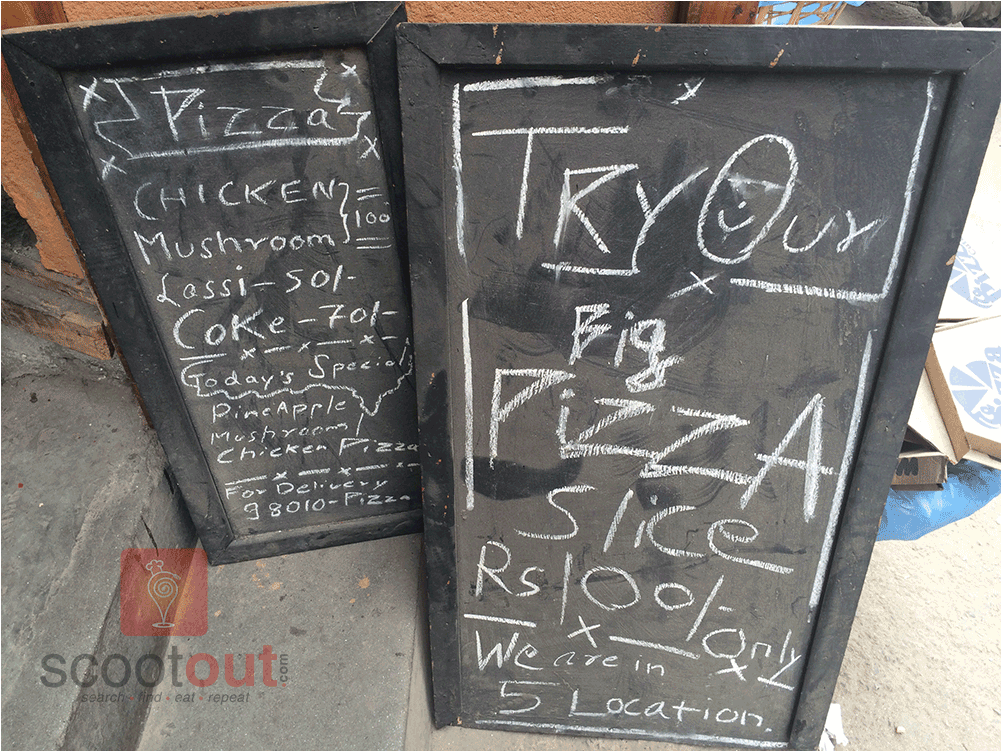 Pizza
CHICKEN
Mushroom } = 100
Lassi - 50/-
Coke - 70/-
Today's Special
PineApple
Mushroom
Chicken Pizza
For Delivery
98010-Pizza
TRY Our
Big
PiZZA
Slice
Rs 100/-
Only
We are in
5 Location
scootout.com
search - find - eat - repeat